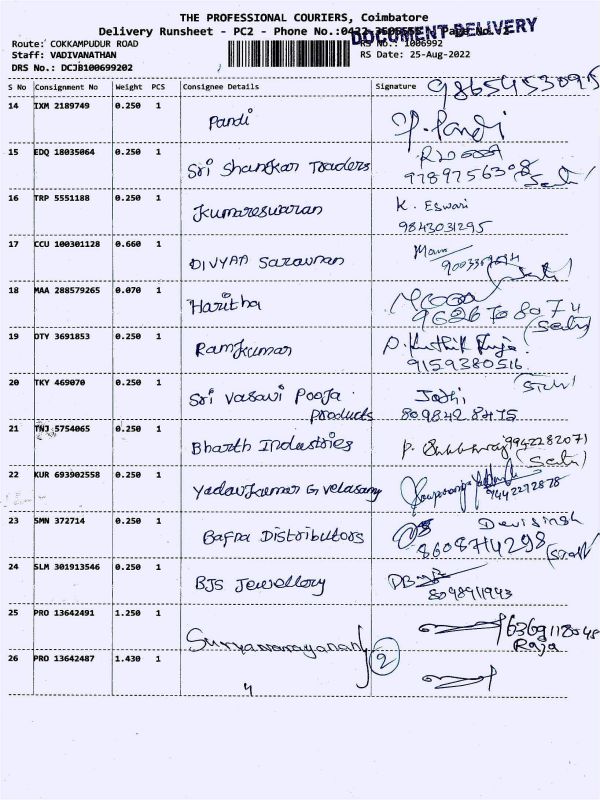 THE PROFESSIONAL COURIERS, Coimbatore
Delivery Runsheet - PC2 - Phone No.:0422- Page No.
DOCUMENT DELIVERY
Route: COKKAMPUDUR ROAD RS No.: 1006992
Staff: VADIVANATHAN RS Date: 25-Aug-2022
DRS No.: DCJB100699202
S No Consignment No Weight PCS Consignee Details Signature 9865453095
14 IXM 2189749 0.250 1 Pandi P. Pandi
15 EDQ 18035064 0.250 1 Sri Shankar Traders 9789756308
16 TRP 5551188 0.250 1 Kumareswaran K. Eswari
9843031295
17 CCU 100301128 0.660 1 DIVYAA Saravanan
18 MAA 288579265 0.070 1 Haritha 9626708074
19 OTY 3691853 0.250 1 Ramkumar
9159380516
20 TKY 469070 0.250 1 Sri Vasavi Pooja Jothi
products 8098428475
21 TNJ 5754065 0.250 1 Bharth Industries 9942282071
22 KUR 693902558 0.250 1 Yadavkumar G Velasamy 9442272878
23 SMN 372714 0.250 1 Bafna Distributors Devisingh
8608714298
24 SLM 301913546 0.250 1 BJS Jewellory
8048911943
25 PRO 13642491 1.250 1 Suryanarayanan
Raja
26 PRO 13642487 1.430 1 2
"